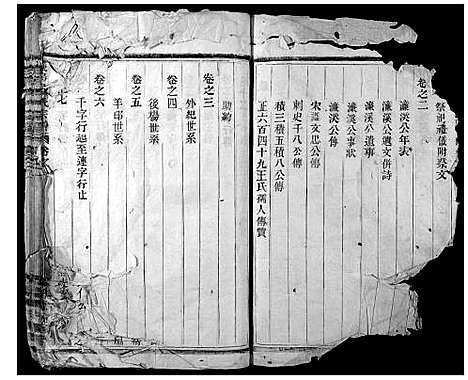 卷之二
祭祀禮儀附祭文
濂溪公年表
濂溪公遺文併詩
濂溪公遺事
濂溪公事狀
濂溪公傳
宋蕰文思公傳
刺史千八公傳
積三積五積八公傳
正六百四十九王氏孺人傳贊
助約
卷之三
外紀世系
卷之四
後楊世系
卷之五
羊印世系
卷之六
千字行起至達字行止